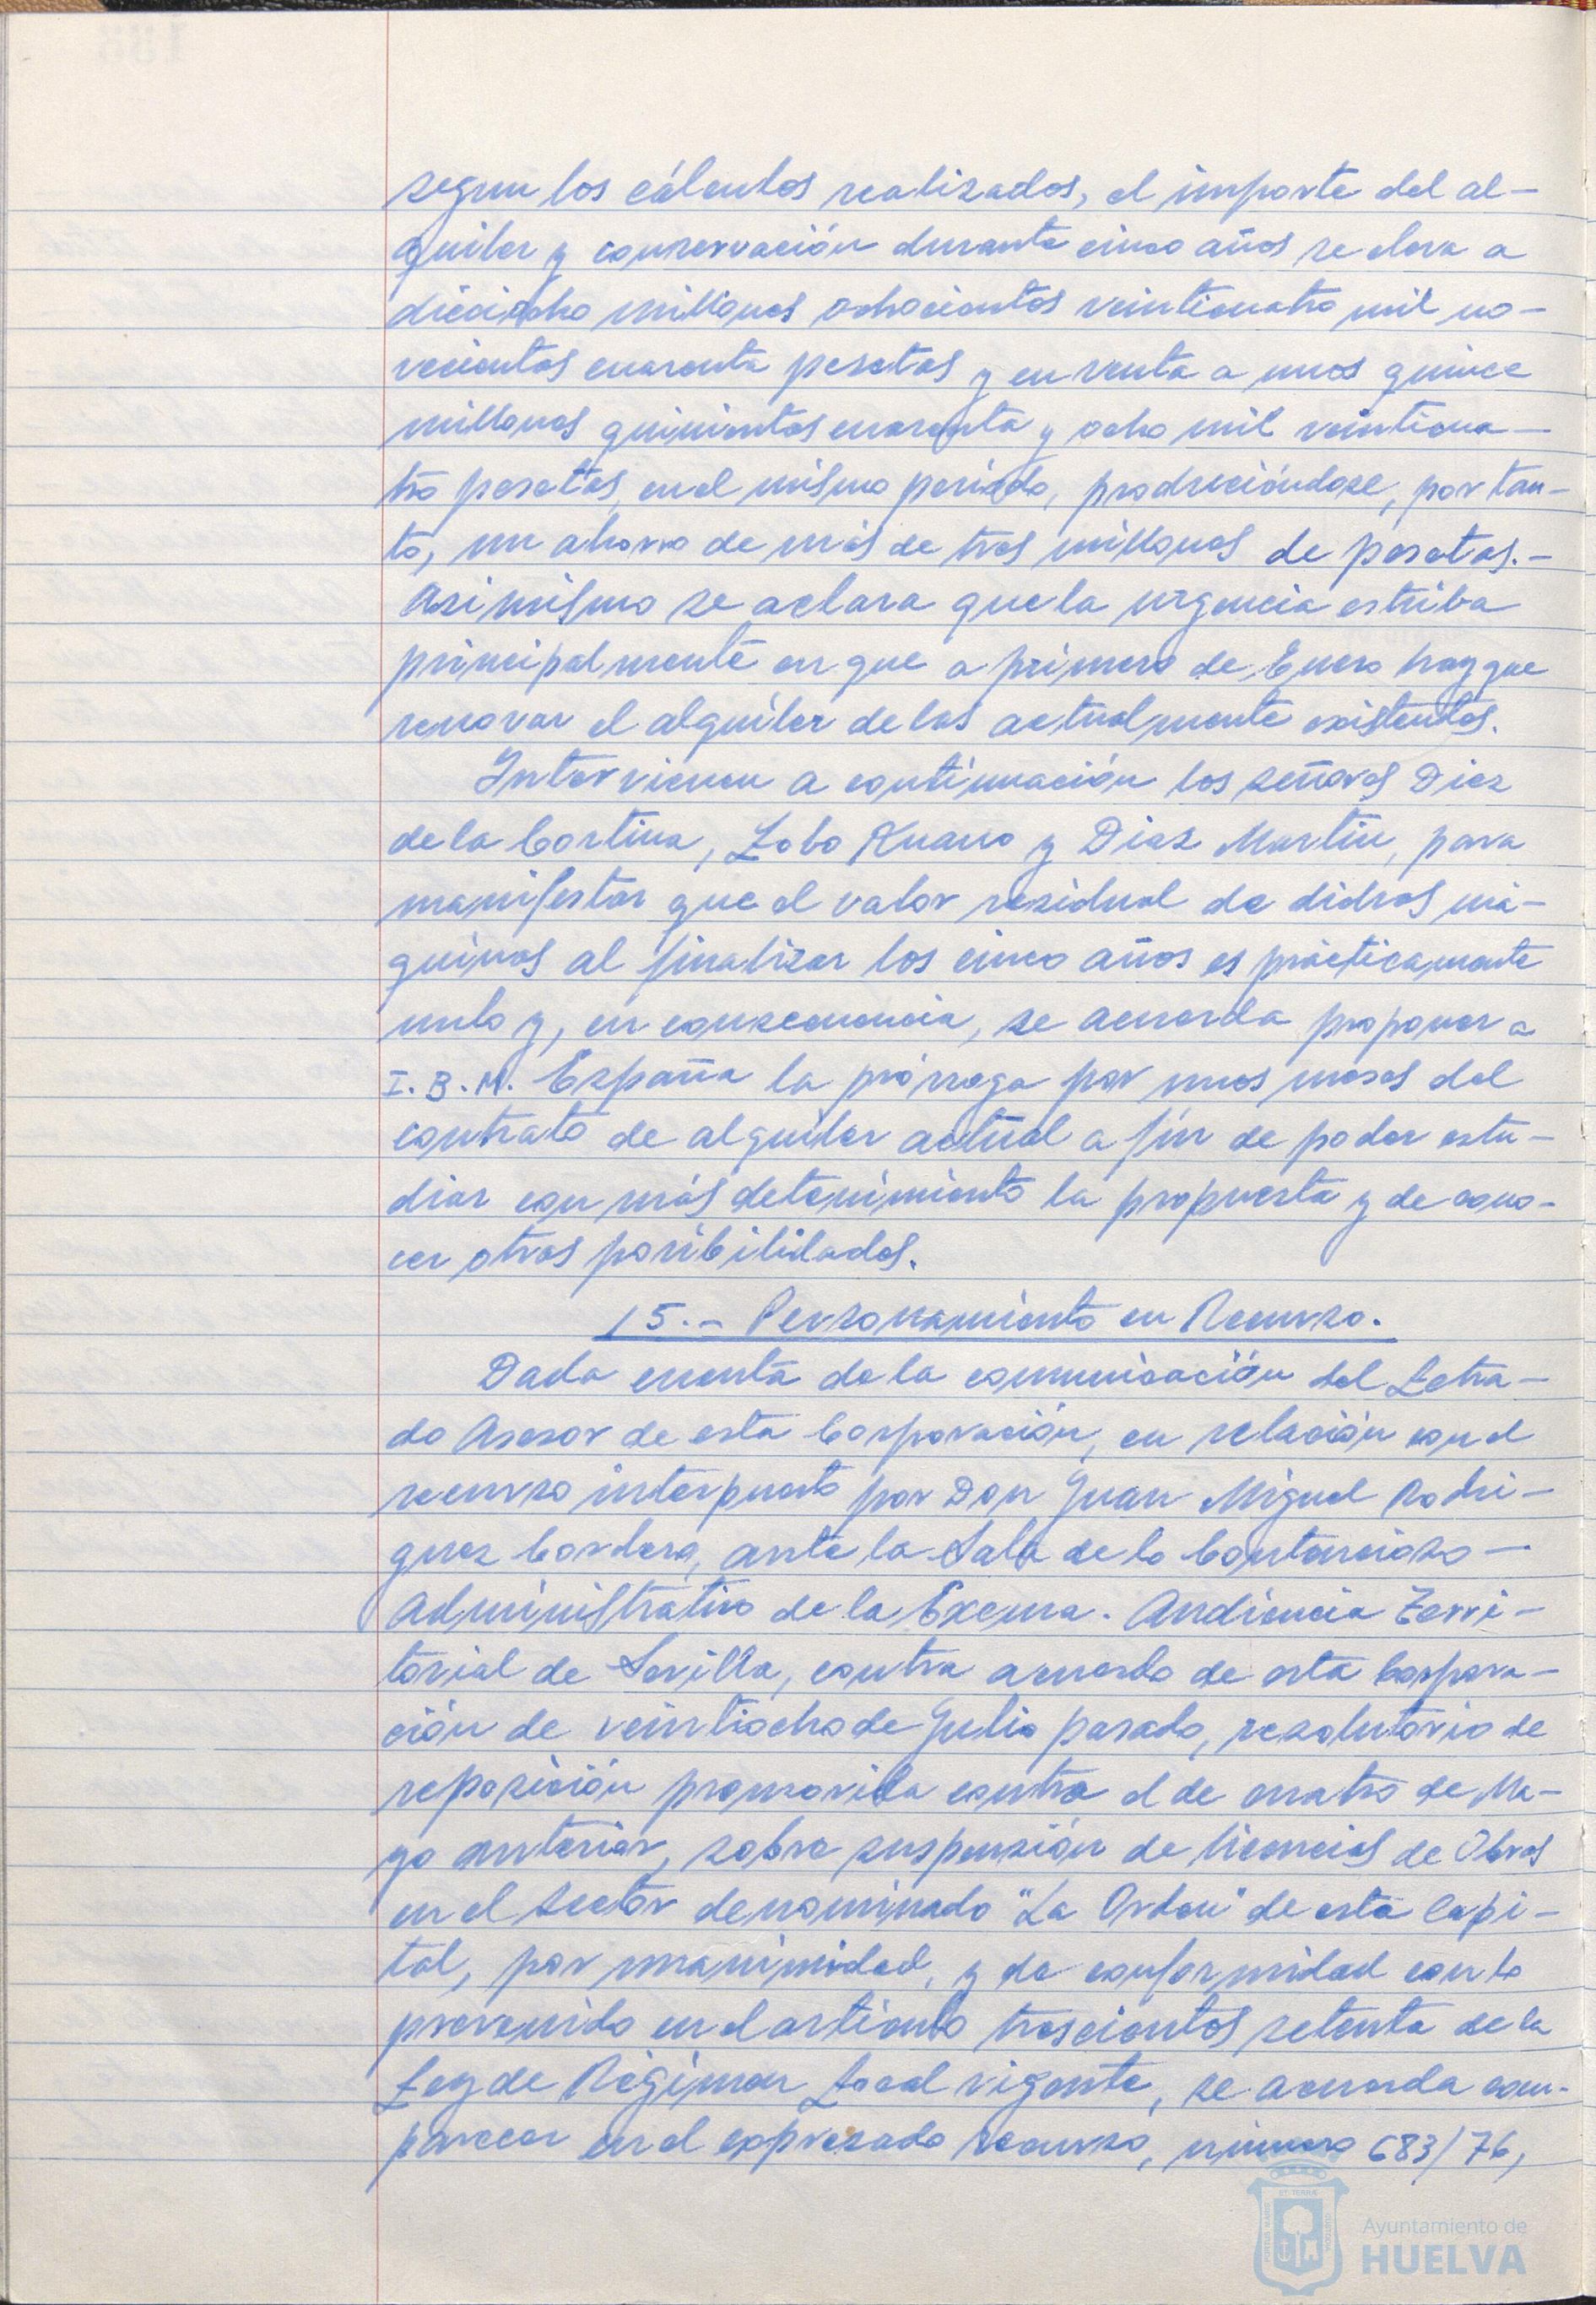 segun los cálculos realizados, el importe del al-
quiler y conservación durante cinco años se eleva a
dieciocho millones ochocientos veinticuatro mil no-
vecientas cuarenta pesetas y en venta a unos quince
millones quinientas cuarenta y ocho mil veinticua-
tro pesetas, en el mismo período, produciéndose, por tan-
to, un ahorro de más de tres millones de pesetas.-
Asimismo se aclara que la urgencia estriba
principalmente en que a primero de Enero hay que
renovar el alquiler de las actualmente existentes.
Intervienen a continuación los señores Diez
de la Cortina, Lobo Ruano y Diaz Martin, para
manifestar que el valor residual de dichas má-
quinas al finalizar los cinco años es prácticamente
nulo y, en consecuencia, se acuerda proponer a
I.B.M. España la prórroga por unos meses del
contrato de alquiler actual a fin de poder estu-
diar con más detenimiento la propuesta y de cono-
cer otras posibilidades.
15.- Personamiento en Recurso.
Dada cuenta de la comunicación del Letra-
do Asesor de esta Corporación, en relación con el
recurso interpuesto por Don Juan Miguel Rodri-
guez Cordero, ante la Sala de lo Contencioso-
Administrativo de la Excma. Audiencia Terri-
torial de Sevilla, contra acuerdo de esta Corpora-
ción de veintiocho de Julio pasado, resolutorio de
reposición promovida contra el de cuatro de Ma-
yo anterior, sobre suspensión de licencias de Obras
en el Sector denominado "La Orden" de esta Capi-
tal, por unanimidad, y de conformidad con lo
prevenido en el artículo trescientos setenta de la
Ley de Régimen Local vigente, se acuerda com-
parecer en el expresado recurso, número 683/76,
Ayuntamiento de
HUELVA